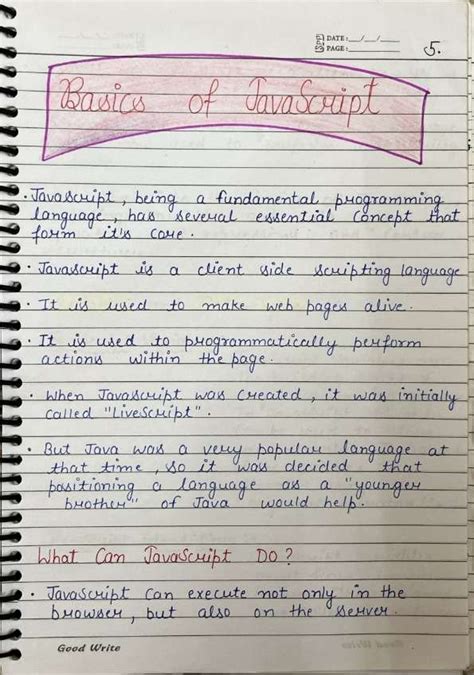 DATE: __/__/__
PAGE: 5.
Basics of JavaScript
• JavaScript, being a fundamental programming
language, has several essential concept that
form it's core.
• JavaScript is a client side scripting language
• It is used to make web pages alive.
• It is used to programmatically perform
actions within the page.
• When JavaScript was created, it was initially
called "LiveScript".
• But Java was a very popular language at
that time, so it was decided that
positioning a language as a "younger
brother" of Java would help.
What Can JavaScript Do?
• JavaScript can execute not only in the
browser, but also on the server.
Good Write